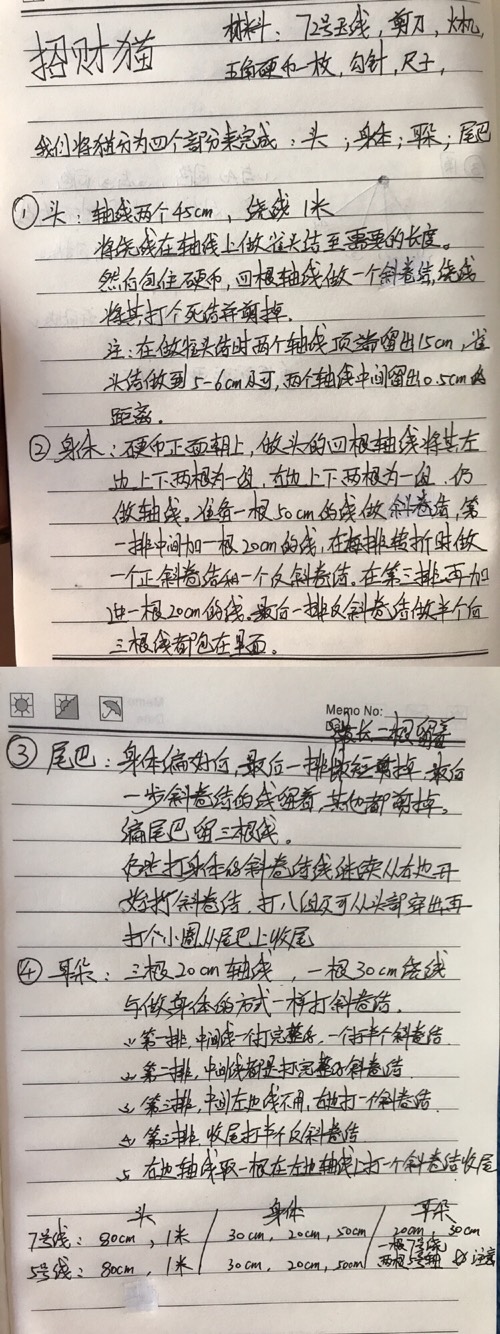 招财猫
材料：72号玉线，剪刀，火机，
五角硬币一枚，勾针，尺子，
我们将猫分为四个部分来完成：头；身体；耳朵；尾巴
① 头：轴线两个45cm，绕线1米
将绕线在轴线上做雀头结至需要的长度。
然后包住硬币，四根轴线做一个斜卷结，绕线
将其打个死结并剪掉。
注：在做雀头结时两个轴线顶端留出15cm，雀
头结做到5-6cm即可，两个轴线中间留出0.5cm的
距离。
② 身体：硬币正面朝上，做头的四根轴线将其左
边上下两根为一组，右边上下两根为一组，仍
做轴线。准备一根50cm的线做斜卷结，第
一排中间加一根20cm的线，在每排转折时做
一个正斜卷结和一个反斜卷结。在第三排再加
进一根20cm的线。最后一排反斜卷结做半个后
三根线都包在里面。
Memo No:
最长二根留着
③ 尾巴：身体编好后，最后一排最短剪掉 最后
一步斜卷结的线留着，其他都剪掉。
编尾巴留三根线。
仍是打身体的斜卷结线继续从右边开
始打斜卷结，打八组即可从头部穿出再
打个小圈从尾巴上收尾
④ 耳朵：三根20cm轴线，一根30cm绕线
与做身体的方式一样打斜卷结。
1、第一排，中间线一个打完整的，一个打半个斜卷结
2、第二排，中间线都是打完整的斜卷结
3、第三排，中间左边线不用，右边打一个斜卷结
4、第三排，收尾打半个反斜卷结
5、右边轴线取一根在左边轴线上打一个斜卷结收尾
头 / 身体 / 耳朵
7号线：80cm，1米 / 30cm，20cm，50cm / 20cm，30cm
一根7号绕
5号线：80cm，1米 / 30cm，20cm，50cm / 两根5号轴 注意